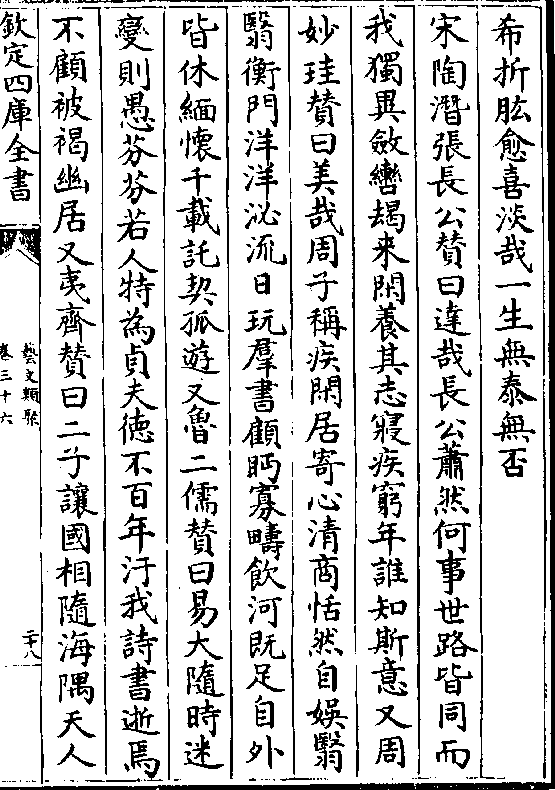 希折肱愈喜淡哉一生無泰無否
宋陶潛張長公賛曰達哉長公蕭然何事世路皆同而
我獨異斂轡朅来閑養其志寢疾窮年誰知斯意又周
妙珪賛曰美哉周子稱疾閑居寄心清商恬然自娛翳
翳衡門洋洋泌流日玩羣書顧眄寡疇飲河既足自外
皆休緬懷千載託契孤遊又魯二儒賛曰易大隨時迷
變則愚芬芬若人特為貞夫徳不百年汙我詩書逝焉
不顧被褐幽居又夷齊賛曰二子讓國相隨海隅天人
欽定四庫全書
藝文類聚
卷三十六
二十八